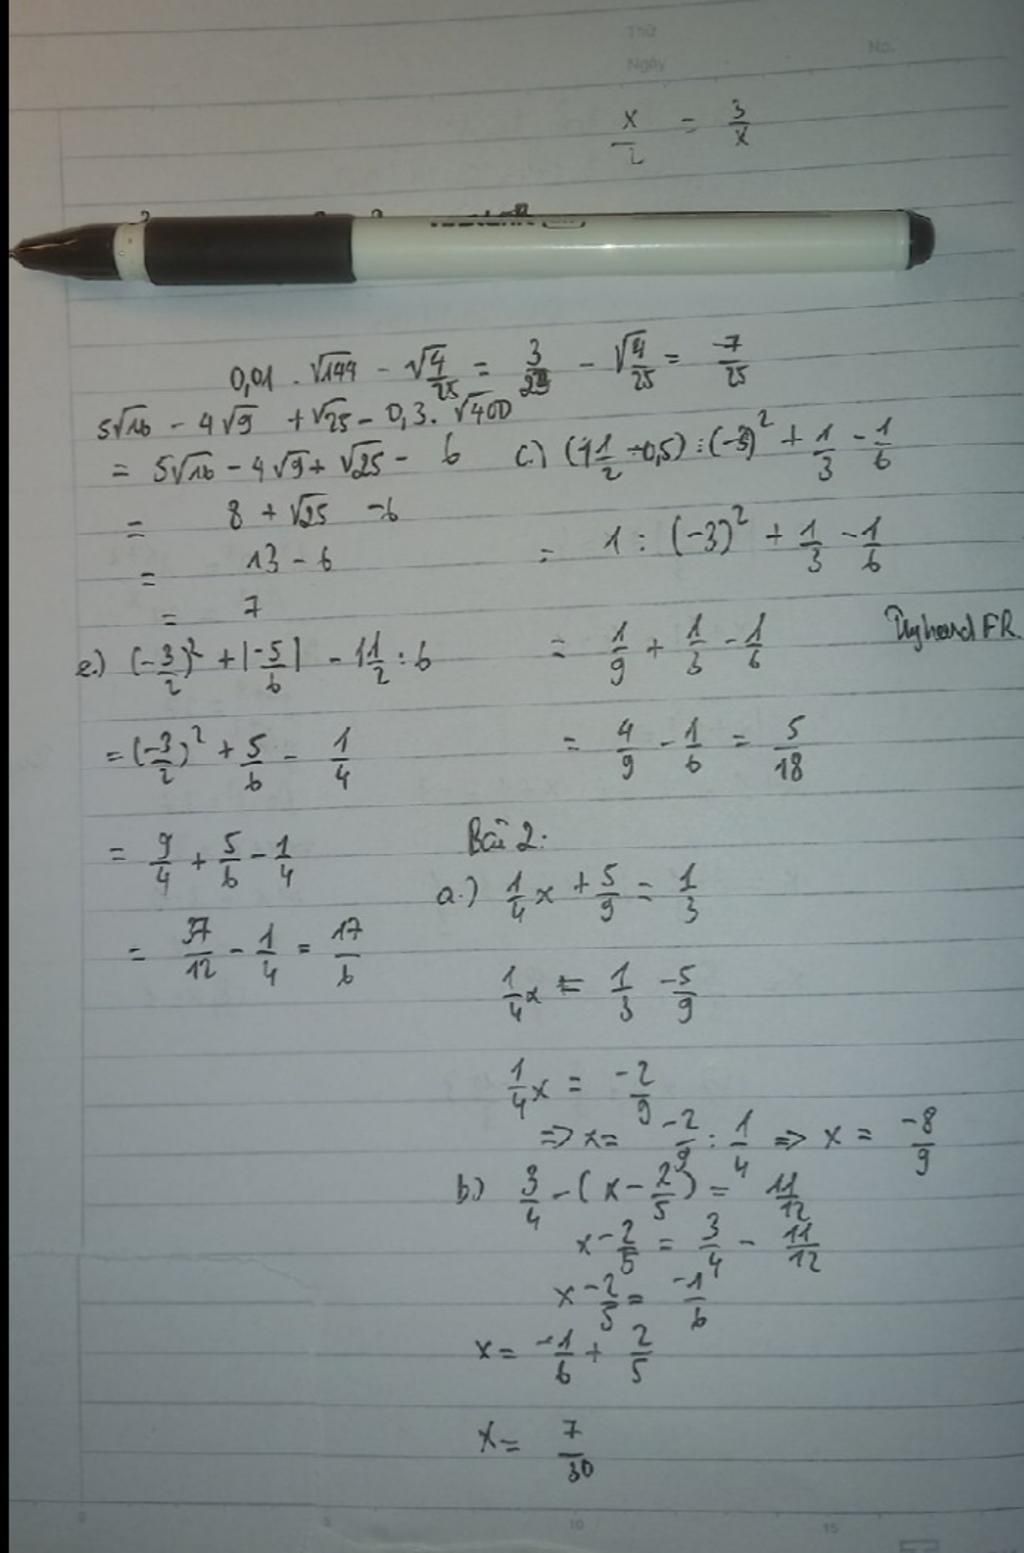 Thứ
Ngày
No.
x/2 = 3/x
0,01 . √144 - √4/25 = 3/25 - √4/25 = -7/25
5√16 - 4√9 + √25 - 0,3. √400
= 5√16 - 4√9 + √25 - 6
= 8 + √25 - 6
= 13 - 6
= 7
c.) (1 1/2 - 0,5) : (-3)² + 1/3 - 1/6
= 1 : (-3)² + 1/3 - 1/6
= 1/9 + 1/3 - 1/6
= 4/9 - 1/6 = 5/18
e.) (-3/2)² + |-5/6| - 1 1/2 : 6
= (-3/2)² + 5/6 - 1/4
= 9/4 + 5/6 - 1/4
= 37/12 - 1/4 = 17/6
Bài 2:
a.) 1/4 x + 5/9 = 1/3
1/4 x = 1/3 - 5/9
1/4 x = -2/9
=> x = -2/9 : 1/4 => x = -8/9
b) 3/4 - (x - 2/5) = 11/12
x - 2/5 = 3/4 - 11/12
x - 2/5 = -1/6
x = -1/6 + 2/5
x = 7/30
0 5 10 15